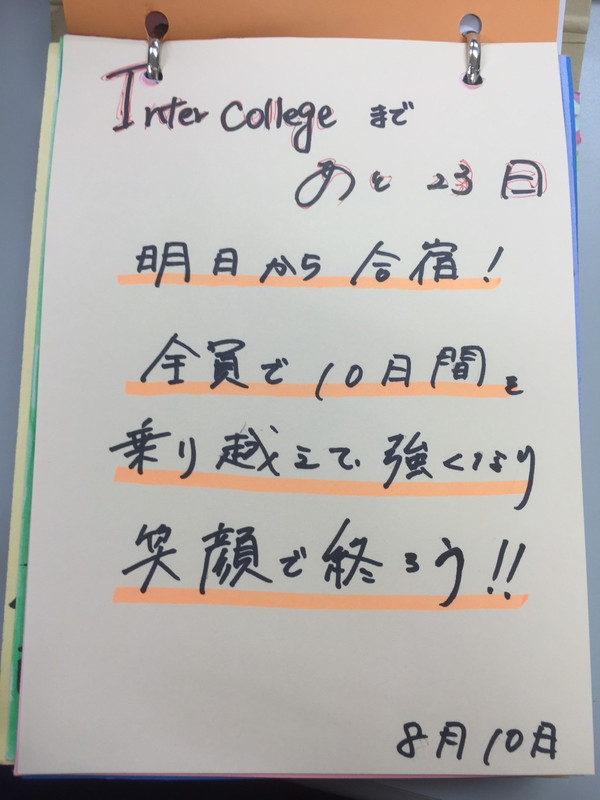 Inter College まで
あと 23日
明日から 合宿!
全員で 10日間を
乗り越えて、強くなり
笑顔で終ろう!!
8月10日